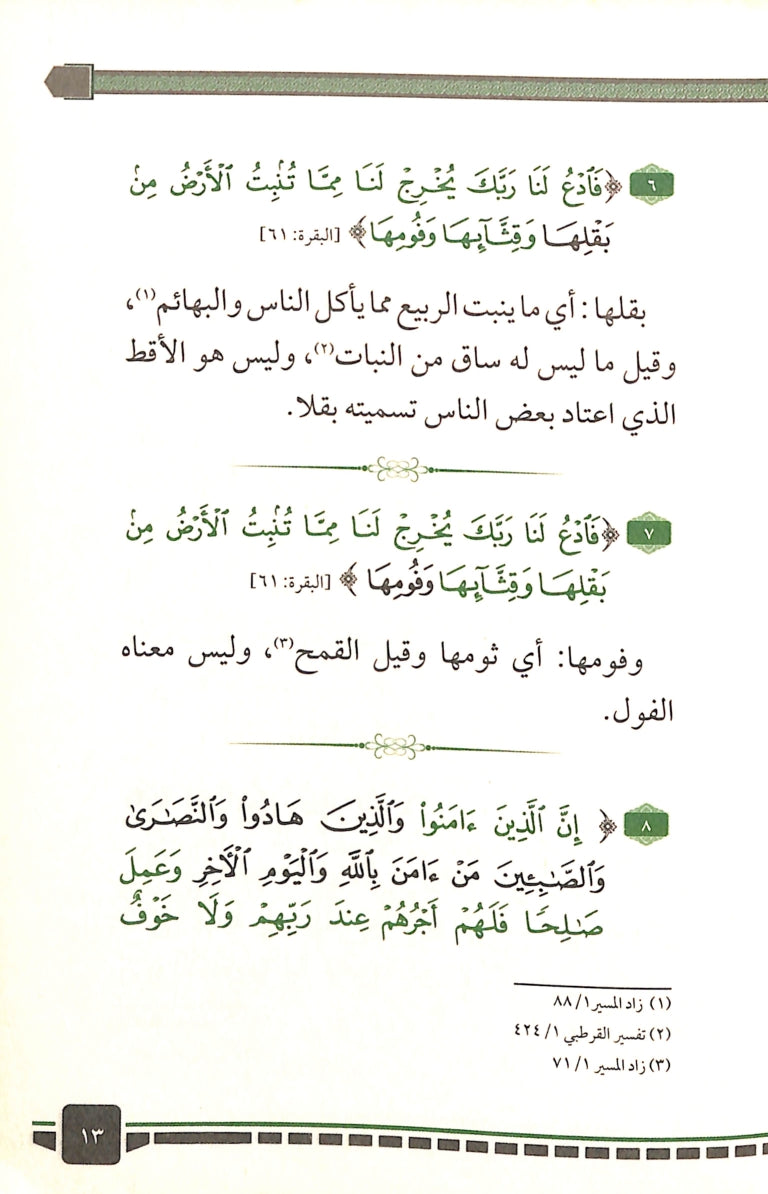 ٦ ﴿فَٱدۡعُ لَنَا رَبَّكَ يُخۡرِجۡ لَنَا مِمَّا تُنۢبِتُ ٱلۡأَرۡضُ مِنۢ
بَقۡلِهَا وَقِثَّآئِهَا وَفُومِهَا﴾ [البقرة: ٦١]
بقلها: أي ما ينبت الربيع مما يأكل الناس والبهائم(١)،
وقيل ما ليس له ساق من النبات(٢)، وليس هو الأقط
الذي اعتاد بعض الناس تسميته بقلا.
٧ ﴿فَٱدۡعُ لَنَا رَبَّكَ يُخۡرِجۡ لَنَا مِمَّا تُنۢبِتُ ٱلۡأَرۡضُ مِنۢ
بَقۡلِهَا وَقِثَّآئِهَا وَفُومِهَا ﴾ [البقرة: ٦١]
وفومها: أي ثومها وقيل القمح(٣)، وليس معناه
الفول.
٨ ﴿ إِنَّ ٱلَّذِينَ ءَامَنُواْ وَٱلَّذِينَ هَادُواْ وَٱلنَّصَٰرَىٰ
وَٱلصَّٰبِـِٔينَ مَنۡ ءَامَنَ بِٱللَّهِ وَٱلۡيَوۡمِ ٱلۡأٓخِرِ وَعَمِلَ
صَٰلِحٗا فَلَهُمۡ أَجۡرُهُمۡ عِندَ رَبِّهِمۡ وَلَا خَوۡفٌ
(١) زاد المسير ١/ ٨٨
(٢) تفسير القرطبي ١/ ٤٢٤
(٣) زاد المسير ١/ ٧١
١٣